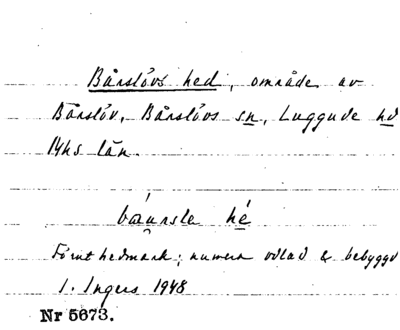 Bårslövs hed, område av
Bårslöv, Bårslövs sn, Luggude hd
Mhs län.
båursle hé
Förut hedmark; numera odlad & bebyggd
I. Ingers 1948
Nr 5673.